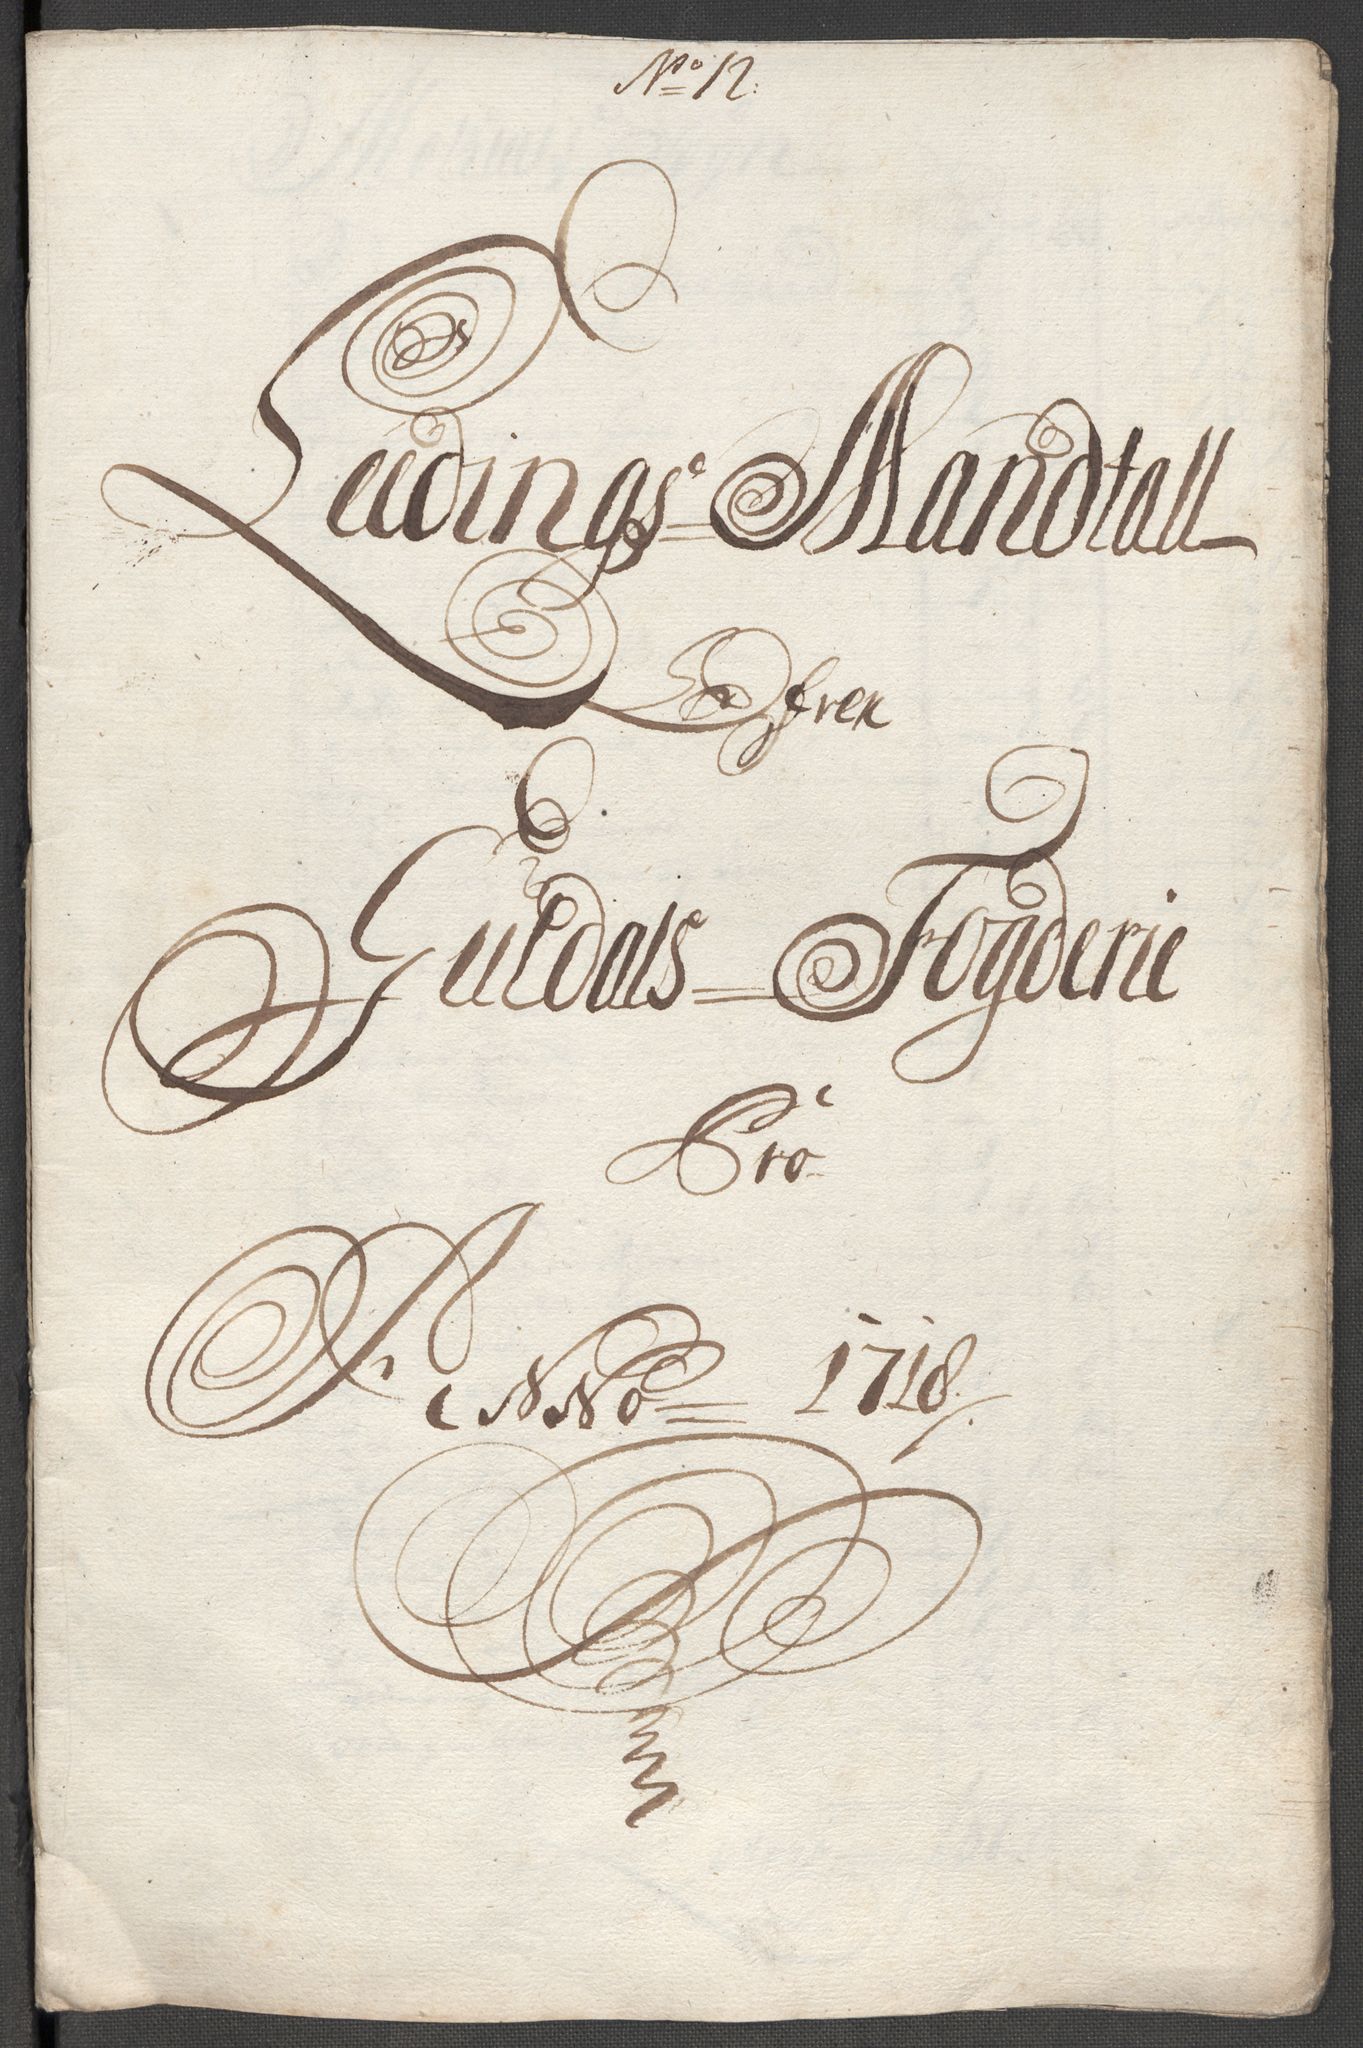 No 12.
Leedings Mandtall
Ofver
Guldals Fogderie
Pro
Anno 1718